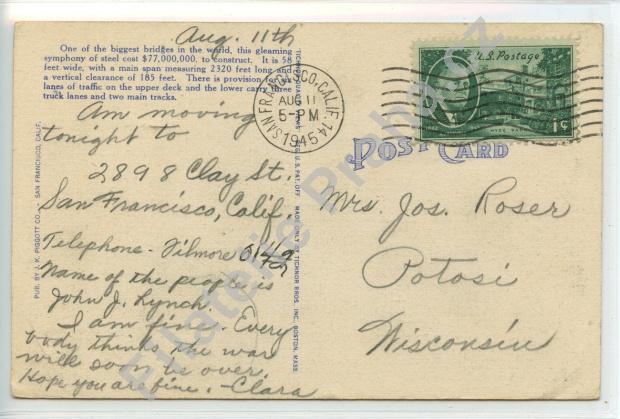 Aug. 11th
One of the biggest bridges in the world, this gleaming
symphony of steel cost $77,000,000, to construct. It is 58
feet wide, with a main span measuring 2320 feet long and
a vertical clearance of 185 feet. There is provision for six
lanes of traffic on the upper deck and the lower carry three
truck lanes and two main tracks.
Am moving
tonight to
2898 Clay St.
San Francisco, Calif.
Telephone - Filmore
Name of the people is
John J. Lynch.
I am fine. Every
body thinks the war
will soon be over.
Hope you are fine. - Clara
PUB. BY J. K. PIGGOTT CO., SAN FRANCISCO, CALIF.
TICHNOR QUALITY VIEWS REG. U. S. PAT. OFF. MADE ONLY BY TICHNOR BROS., INC., BOSTON, MASS.
SAN FRANCISCO, CALIF. 14
AUG 11
5-PM
1945
U.S. Postage
HYDE PARK
1¢
POST CARD
Mrs. Jos. Roser
Potosi
Wisconsin